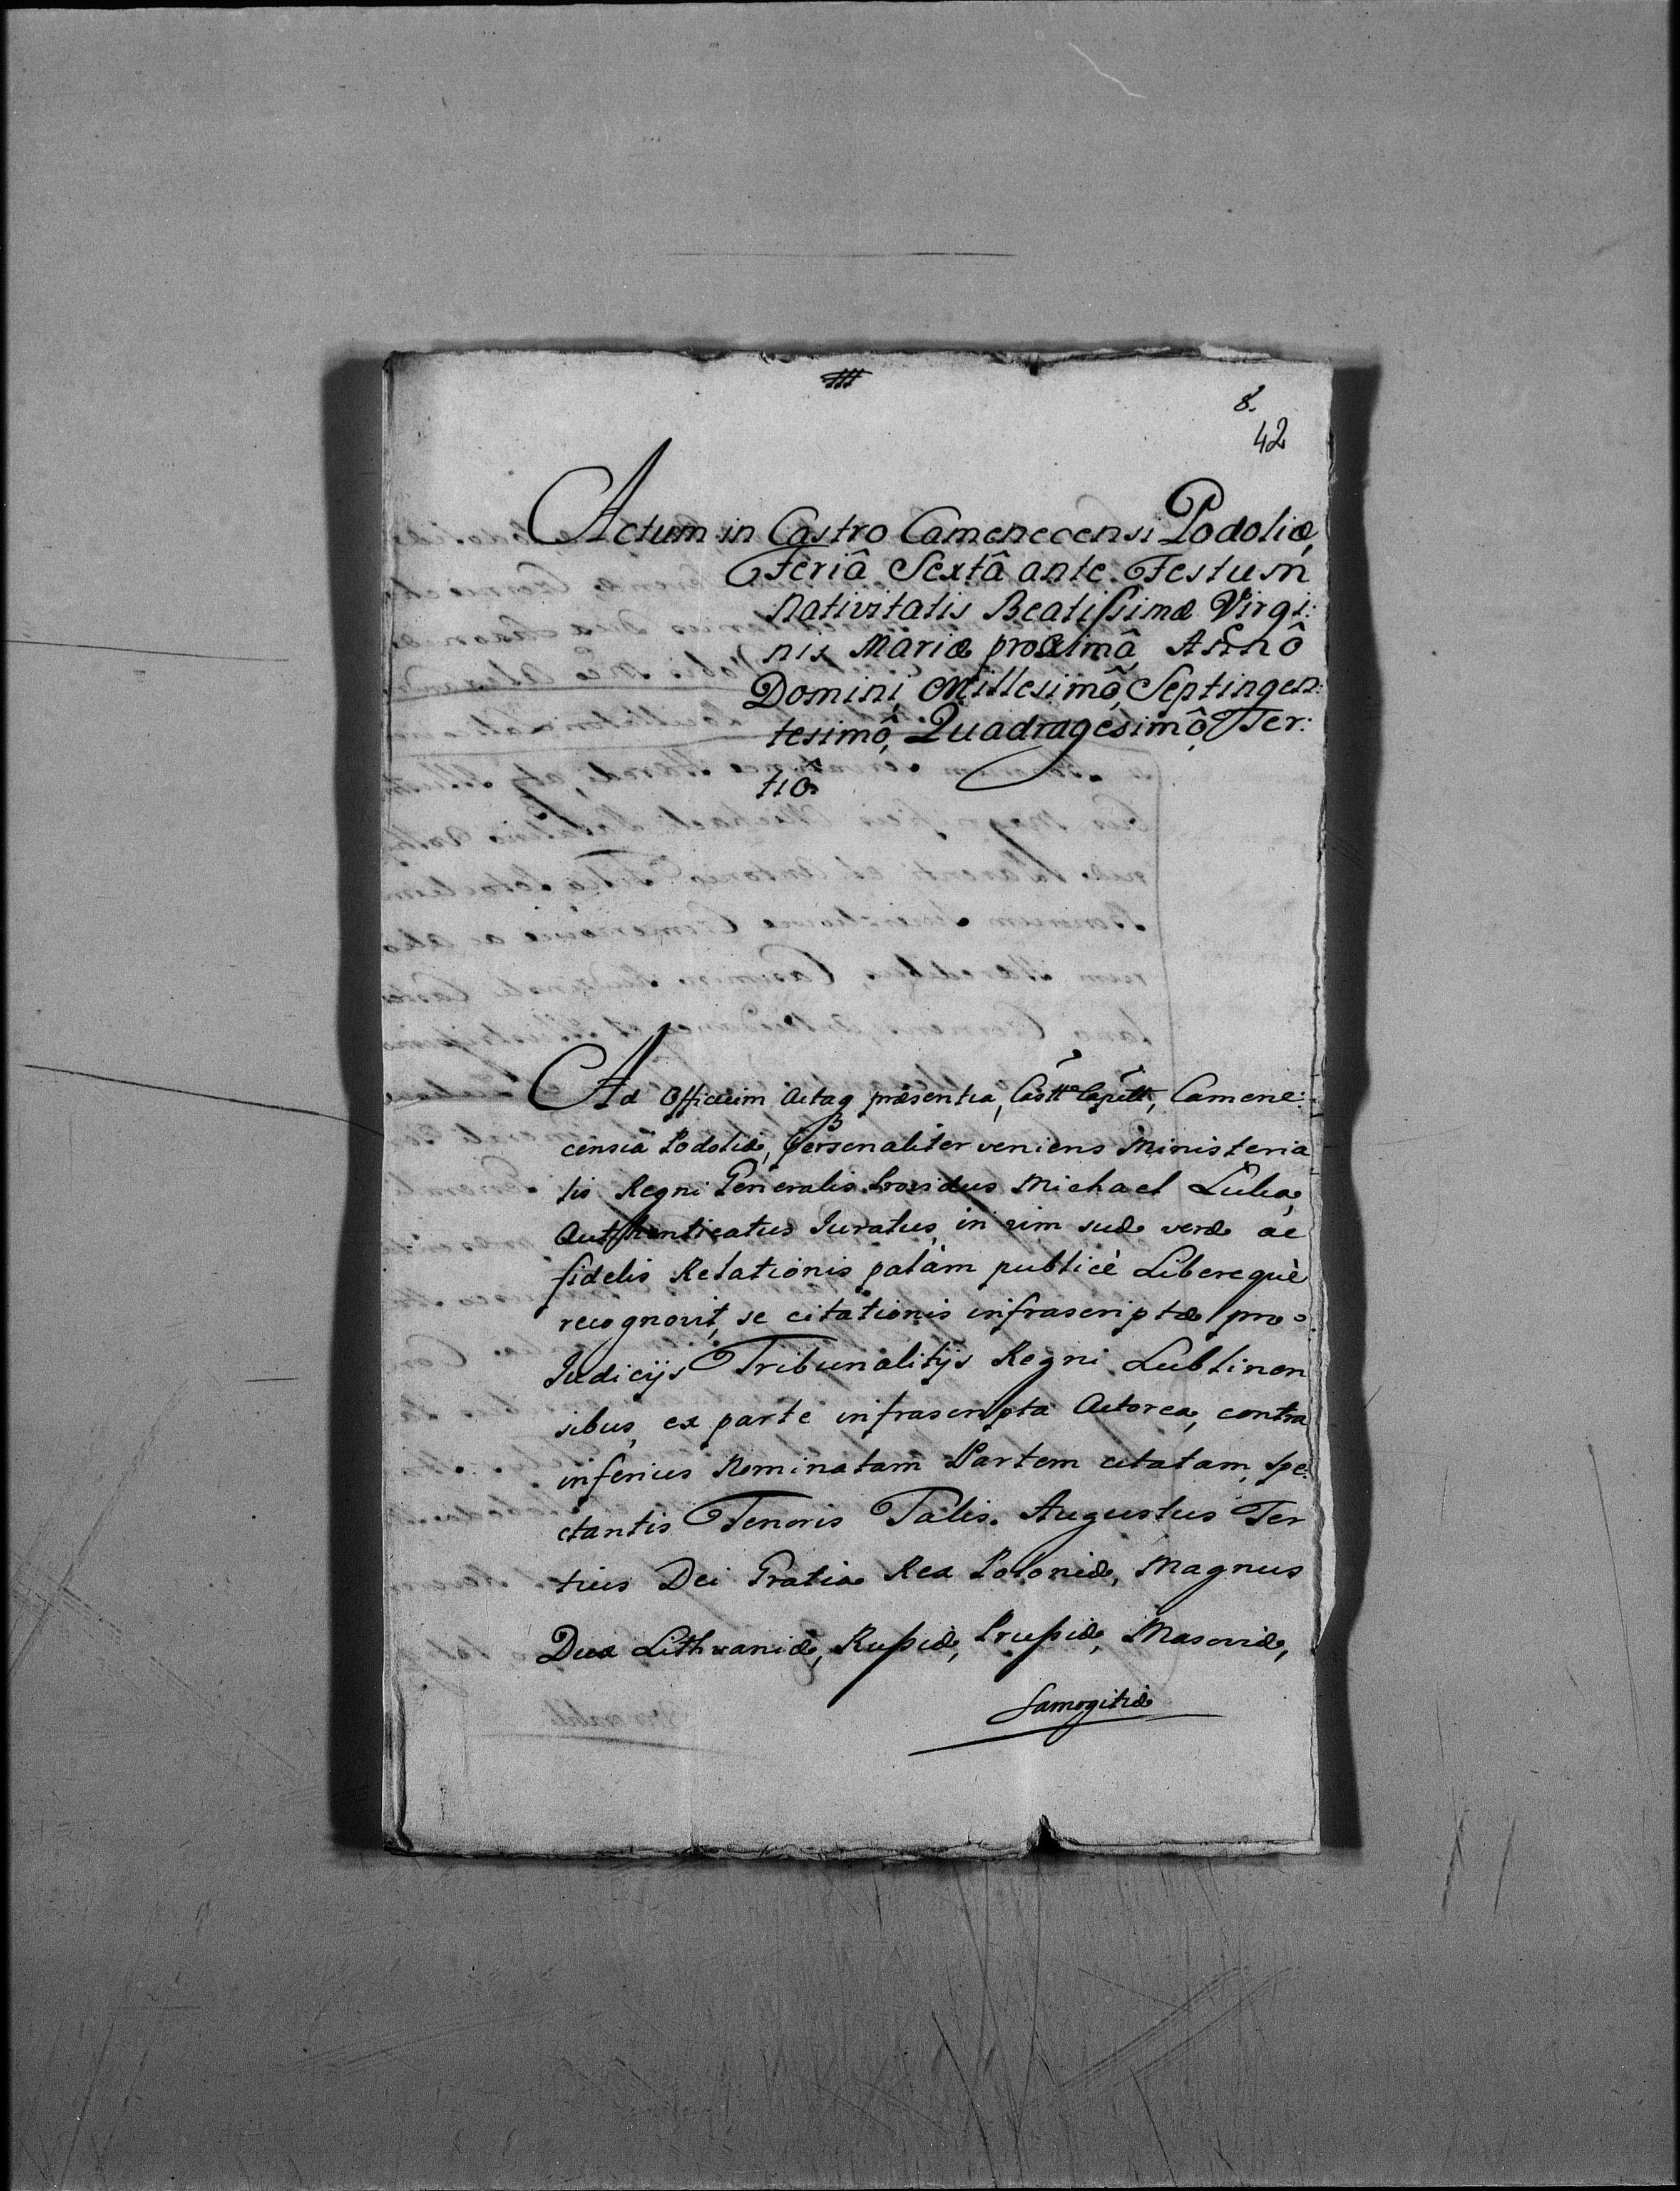 8.
42
Actum in Castro Camenecensi Podoliæ,
Feriâ Sextâ ante Festum
Nativitatis Beatissimæ Virgi:
nis Mariæ proximâ, Annô
Domini, Millesimô, Septingen:
tesimô, Quadragesimô, Ter:
tiô.
Ad Officium Actaq præsentia, Castr. Capitt, Camene:
censia Podoliæ, Personaliter veniens Ministeria
lis Regni Generalis Providus Michael Luba,
Authenticatus Juratus, in vim suæ veræ ac
fidelis Relationis palàm publicè Liberequè
recognovit, se citationis infrascriptæ pro
Judicijs Tribunalitijs Regni Lublinen
sibus, ex parte infrascripta Actorea, contra
inferius Nominatam Partem citatam, spe:
ctantis Tenoris Talis. Augustus Ter
tius Dei Gratia Rex Poloniæ, Magnus
Dux Lithuaniæ, Russiæ, Prussiæ, Masoviæ,
Samogitiæ